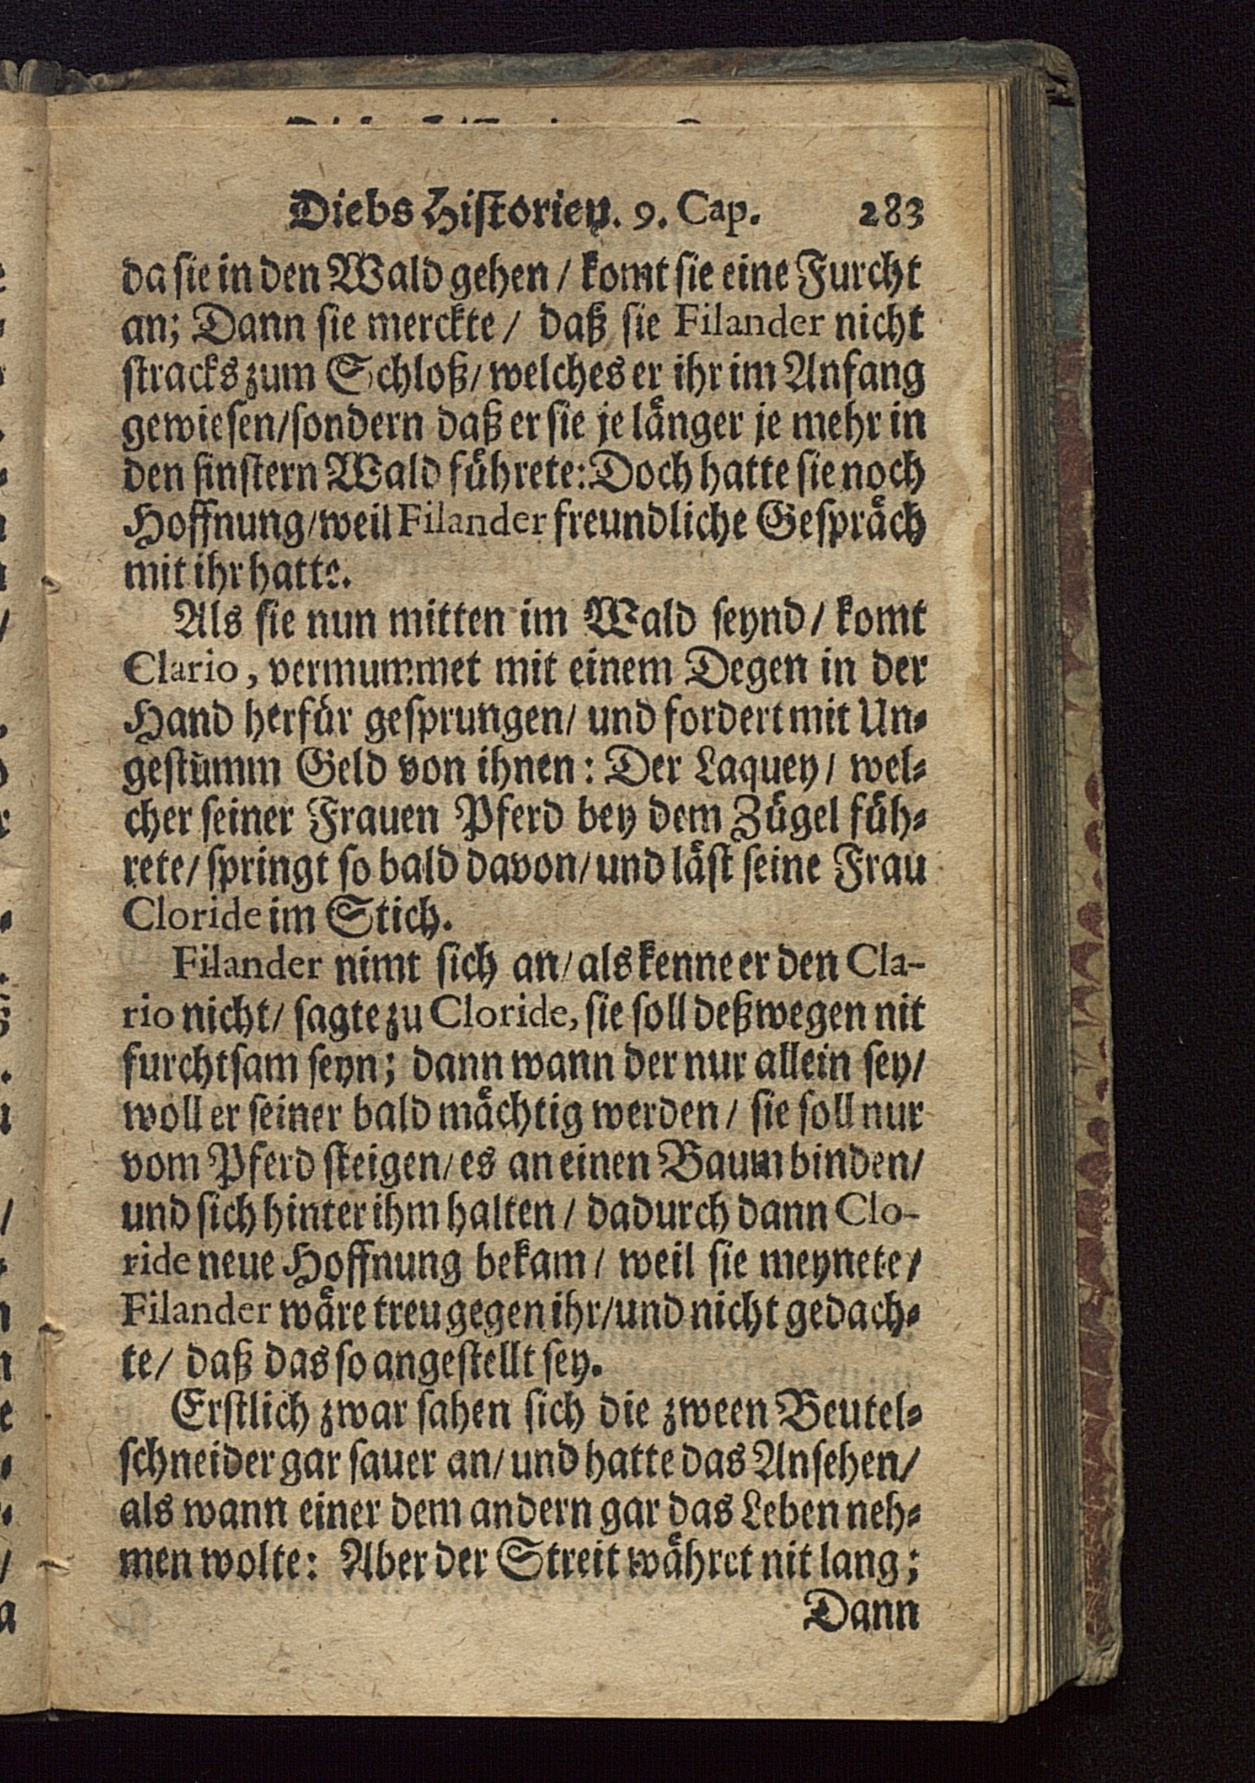 Diebs Historien. 9. Cap. 283
da sie in den Wald gehen / komt sie eine Furcht
an; Dann sie merckte / daß sie Filander nicht
stracks zum Schloß / welches er ihr im Anfang
gewiesen / sondern daß er sie je länger je mehr in
den finstern Wald führete: Doch hatte sie noch
Hoffnung / weil Filander freundliche Gespräch
mit ihr hatte.
Als sie nun mitten im Wald seynd / komt
Clario, vermummet mit einem Degen in der
Hand herfür gesprungen / und fordert mit Un-
gestümm Geld von ihnen: Der Laquey / wel-
cher seiner Frauen Pferd bey dem Zügel füh-
rete / springt so bald davon / und läst seine Frau
Cloride im Stich.
Filander nimt sich an / als kenne er den Cla-
rio nicht / sagte zu Cloride, sie soll deßwegen nit
furchtsam seyn; dann wann der nur allein sey /
woll er seiner bald mächtig werden / sie soll nur
vom Pferd steigen / es an einen Baum binden /
und sich hinter ihm halten / dadurch dann Clo-
ride neue Hoffnung bekam / weil sie meynete /
Filander wäre treu gegen ihr / und nicht gedach-
te / daß das so angestellt sey.
Erstlich zwar sahen sich die zween Beutel-
schneider gar sauer an / und hatte das Ansehen /
als wann einer dem andern gar das Leben neh-
men wolte: Aber der Streit währet nit lang;
Dann